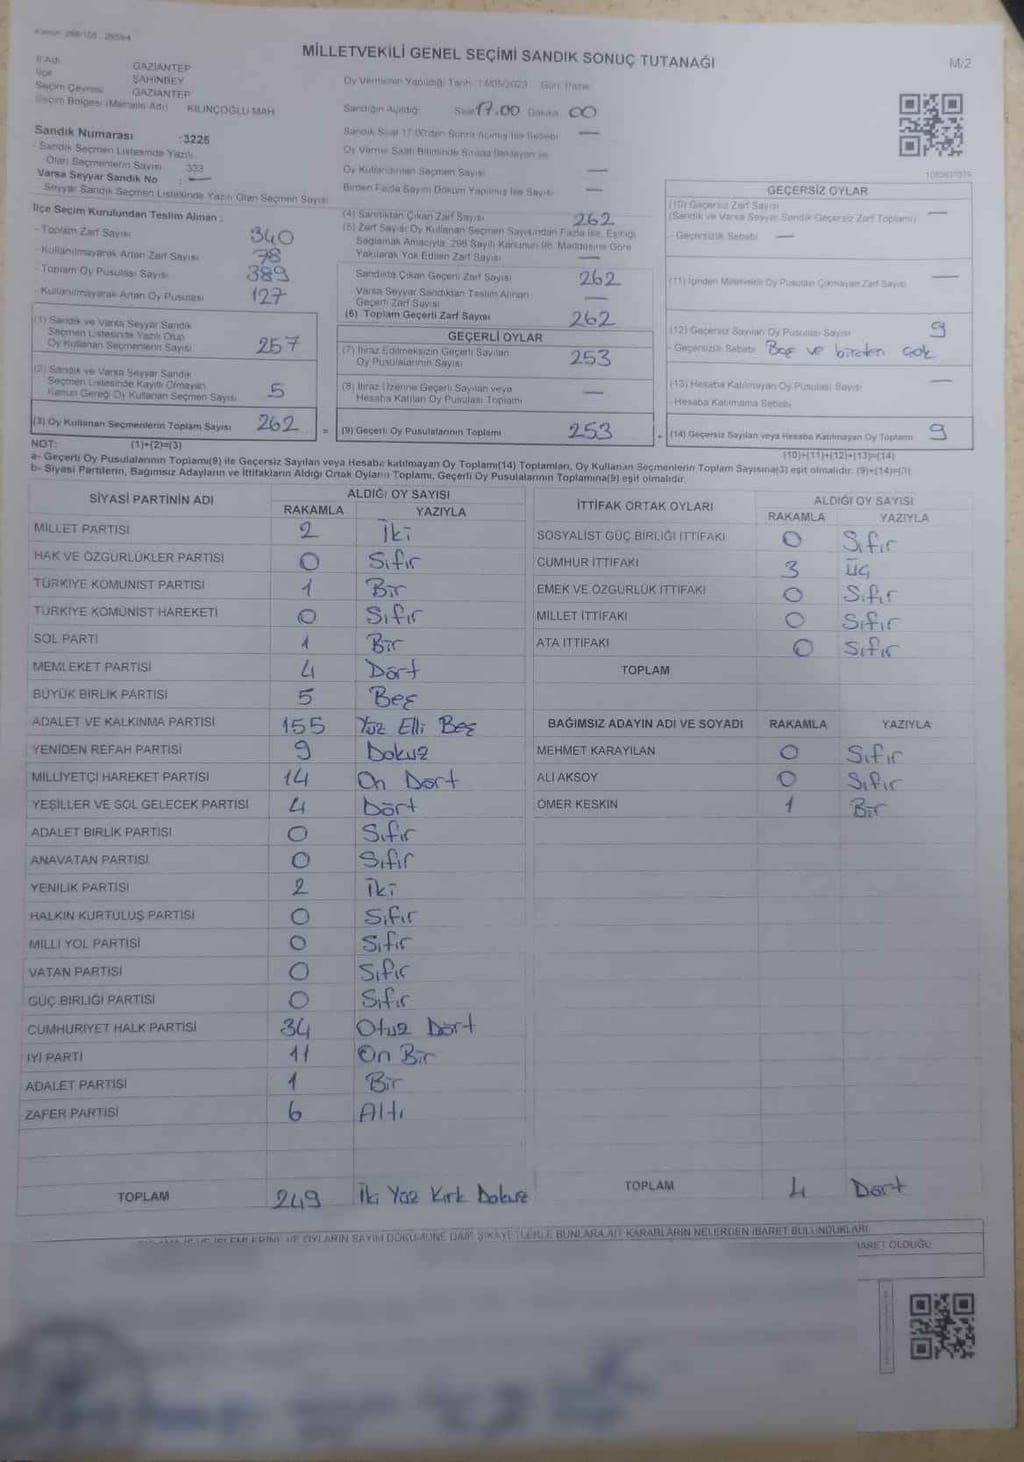 MİLLETVEKİLİ GENEL SEÇİMİ SANDIK SONUÇ TUTANAĞI
M/2
İl Adı GAZİANTEP
İlçe ŞAHİNBEY
Seçim Çevresi GAZİANTEP
Seçim Bölgesi (Mahalle Adı) KILINÇOĞLU MAH
Oy Vermenin Yapıldığı Tarih : 14/05/2023 Gün: Pazar
Sandığın Açıldığı Saat 17.00 Dakika 00
Sandık Numarası :3225
Sandık Seçmen Listesinde Yazılı
Olan Seçmenlerin Sayısı 333
Varsa Seyyar Sandık No : —
Seyyar Sandık Seçmen Listesinde Yazılı Olan Seçmen Sayısı
Sandık Saat 17.00'den Sonra Açılmış İse Sebebi —
Oy Verme Saati Bitiminde Sırada Bekleyen ve
Oy Kullandırılan Seçmen Sayısı —
Birden Fazla Sayım Döküm Yapılmış İse Sayısı —
İlçe Seçim Kurulundan Teslim Alınan :
- Toplam Zarf Sayısı 340
- Kullanılmayarak Artan Zarf Sayısı 78
- Toplam Oy Pusulası Sayısı 389
- Kullanılmayarak Artan Oy Pusulası 127
(1) Sandık ve Varsa Seyyar Sandık
Seçmen Listesinde Yazılı Olup
Oy Kullanan Seçmenlerin Sayısı 257
(2) Sandık ve Varsa Seyyar Sandık
Seçmen Listesinde Kayıtlı Olmayan
Kanun Gereği Oy Kullanan Seçmen Sayısı 5
(3) Oy Kullanan Seçmenlerin Toplam Sayısı 262
(4) Sandıktan Çıkan Zarf Sayısı 262
(5) Zarf Sayısı Oy Kullanan Seçmen Sayısından Fazla İse, Eşitliği
Sağlamak Amacıyla, 298 Sayılı Kanunun 98. Maddesine Göre
Yakılarak Yok Edilen Zarf Sayısı —
Sandıkta Çıkan Geçerli Zarf Sayısı 262
Varsa Seyyar Sandıktan Teslim Alınan
Geçerli Zarf Sayısı —
(6) Toplam Geçerli Zarf Sayısı 262
GEÇERLİ OYLAR
(7) İtiraz Edilmeksizin Geçerli Sayılan
Oy Pusulalarının Sayısı 253
(8) İtiraz Üzerine Geçerli Sayılan veya
Hesaba Katılan Oy Pusulası Toplamı —
= (9) Geçerli Oy Pusulalarının Toplamı 253
GEÇERSİZ OYLAR
(10) Geçersiz Zarf Sayısı
(Sandık ve Varsa Seyyar Sandık Geçersiz Zarf Toplamı) —
- Geçersizlik Sebebi —
(11) İçinden Milletvekili Oy Pusulası Çıkmayan Zarf Sayısı —
(12) Geçersiz Sayılan Oy Pusulası Sayısı 9
- Geçersizlik Sebebi Boş ve birden çok
(13) Hesaba Katılmayan Oy Pusulası Sayısı —
- Hesaba Katılmama Sebebi
+ (14) Geçersiz Sayılan veya Hesaba Katılmayan Oy Toplamı 9
NOT: (1)+(2)=(3) (10)+(11)+(12)+(13)=(14)
a- Geçerli Oy Pusulalarının Toplamı(9) ile Geçersiz Sayılan veya Hesaba katılmayan Oy Toplamı(14) Toplamları, Oy Kullanan Seçmenlerin Toplam Sayısına(3) eşit olmalıdır. (9)+(14)=(3)
b- Siyasi Partilerin, Bağımsız Adayların ve İttifakların Aldığı Ortak Oyların Toplamı, Geçerli Oy Pusulalarının Toplamına(9) eşit olmalıdır.
SİYASİ PARTİNİN ADI ALDIĞI OY SAYISI
RAKAMLA YAZIYLA
MİLLET PARTİSİ 2 İki
HAK VE ÖZGÜRLÜKLER PARTİSİ 0 Sıfır
TÜRKİYE KOMÜNİST PARTİSİ 1 Bir
TÜRKİYE KOMÜNİST HAREKETİ 0 Sıfır
SOL PARTİ 1 Bir
MEMLEKET PARTİSİ 4 Dört
BÜYÜK BİRLİK PARTİSİ 5 Beş
ADALET VE KALKINMA PARTİSİ 155 Yüz Elli Beş
YENİDEN REFAH PARTİSİ 9 Dokuz
MİLLİYETÇİ HAREKET PARTİSİ 14 On Dört
YEŞİLLER VE SOL GELECEK PARTİSİ 4 Dört
ADALET BİRLİK PARTİSİ 0 Sıfır
ANAVATAN PARTİSİ 0 Sıfır
YENİLİK PARTİSİ 2 İki
HALKIN KURTULUŞ PARTİSİ 0 Sıfır
MİLLİ YOL PARTİSİ 0 Sıfır
VATAN PARTİSİ 0 Sıfır
GÜÇ BİRLİĞİ PARTİSİ 0 Sıfır
CUMHURİYET HALK PARTİSİ 34 Otuz Dört
İYİ PARTİ 11 On Bir
ADALET PARTİSİ 1 Bir
ZAFER PARTİSİ 6 Altı
TOPLAM 249 İki Yüz Kırk Dokuz
İTTİFAK ORTAK OYLARI ALDIĞI OY SAYISI
RAKAMLA YAZIYLA
SOSYALİST GÜÇ BİRLİĞİ İTTİFAKI 0 Sıfır
CUMHUR İTTİFAKI 3 Üç
EMEK VE ÖZGÜRLÜK İTTİFAKI 0 Sıfır
MİLLET İTTİFAKI 0 Sıfır
ATA İTTİFAKI 0 Sıfır
TOPLAM
BAĞIMSIZ ADAYIN ADI VE SOYADI RAKAMLA YAZIYLA
MEHMET KARAYILAN 0 Sıfır
ALİ AKSOY 0 Sıfır
ÖMER KESKİN 1 Bir
TOPLAM 4 Dört
VE OYLARIN SAYIM DÖKÜMÜNE DAİR ŞİKAYETLERLE BUNLARA AİT KARARLARIN NELERDEN İBARET BULUNDUKLARI
İBARET OLDUĞU